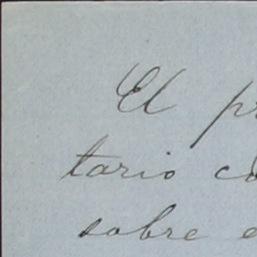 El pr
tario co
sobre e